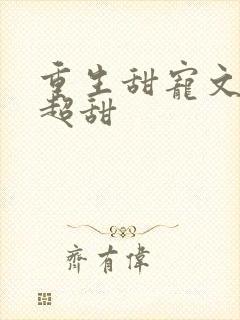 重生甜寵文
超甜
齊有偉